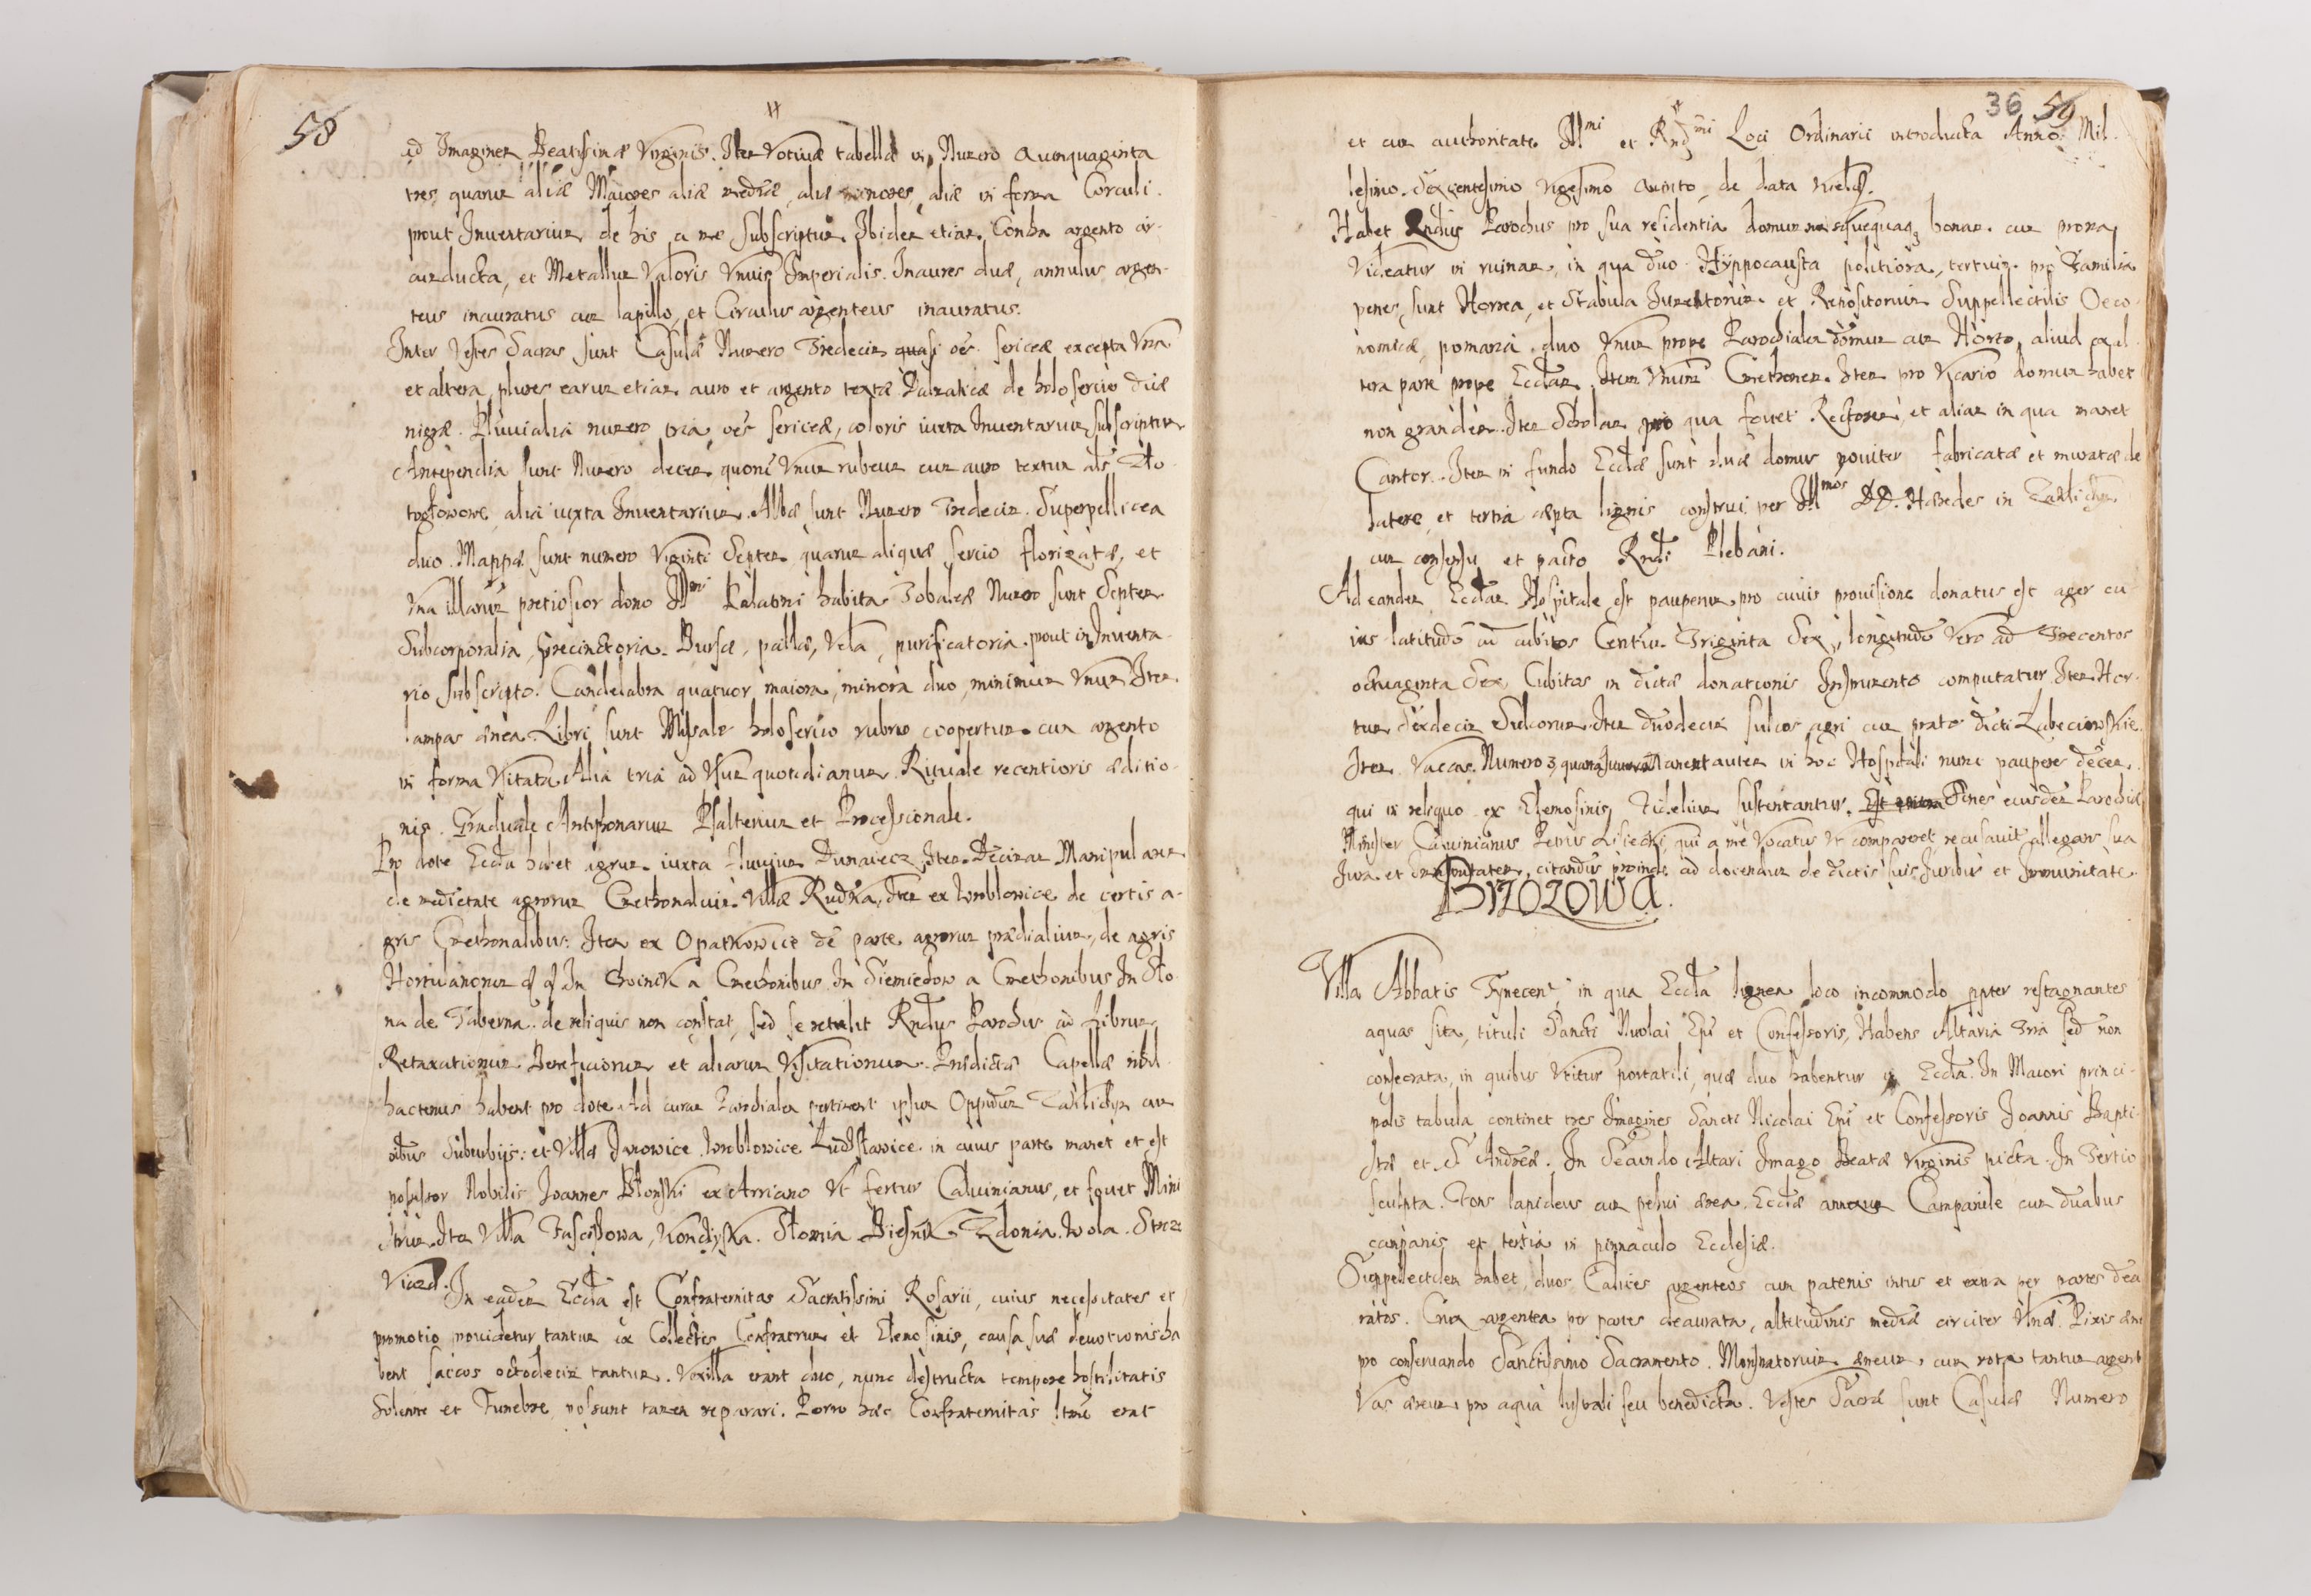 58
ad Imaginem Beatissimæ Virginis. Item Votivæ tabellæ in Numero Quinquaginta
tres, quarum aliæ Maiores aliæ mediæ, aliæ minores, aliæ in forma Corculi.
prout Inventarium de his a me subscriptum. Ibidem etiam Concha argento cir-
cumducta, et Metallum Valoris Unius Imperialis. Inaures duæ, annulus argen-
teus inauratus cum lapillo, et Circulus argenteus inauratus.
Inter Vestes Sacras sunt Casulæ Numero Tredecim quasi oēs sericeæ excepta Una
et altera, plures earum etiam auro et argento textæ Dalmaticæ de holoserico duæ
nigræ. Pluvialia numero tria, oēs sericeæ, coloris iuxta Inventarium subscriptum
Antependia sunt Numero decem quorū Unum rubeum cum auro textum als Zło-
togłowowe alia iuxta Inventarium. Albæ sunt Numero Tredecim. Superpellicea
duo. Mappæ sunt numero Viginti Septem quarum aliquæ serico florizatæ, et
Una illarum pretiosior dono Illmi Palatini habita Tobaleæ Numero sunt Septem
Subcorporalia, Præcinctoria. Bursæ, pallæ, Vela, purificatoria. prout in Inventa-
rio subscripto. Candelabra quatuor maiora, minora duo, minimum Unum Item
lampas ænea. Libri sunt Missale holoserico rubro coopertum. cum argento
in forma Usitata. Alia tria ad Usum quotidianum. Rituale recentioris æditio-
nis. Graduale Antiphonarium Psalterium et Processionale.
Pro dote Eccla habet agrum iuxta fluvium Dunaiecz, Item Decimam Manipularem
de medietate agrorum Cmethonalium Villæ Rudka, Item ex Wroblowice de certis a-
gris Cmethonalibus: Item ex Opatkowice de parte agrorum prædialium, de agris
Hortulanorum In Chvinik a Cmethonibus In Siemiechow a Cmethonibus In Sło-
na de Taberna. de reliquis non constat, sed se retulit Rndus Parochus ad Librum
Retaxationum Beneficiorum et aliarum Visitationum. Prædictæ Capellæ nihil
hactenus habent pro dote. Ad curam Parochialem pertinent ipsum Oppidum Zakliczyn cum
oībus Suburbijs: et Villæ Janowice Wroblowice Ludsławice in cuius parte manet et est
possessor Nobilis Joannes Błonski ex Arriano Ut fertur Calvinianus, et fovet Mini
strum. Item Villa Fascissowa, Konczyska. Słonia Biesnik Zdonia. Wola. Stroze
In eadem Eccla est Confraternitas Sacratissimi Rosarii, cuius necessitates et
promotio providetur tantum ex Collectis Confratrum et Elemosinis, causa suæ devotionis ha
bent saccos octodecim tantum. Vexilla erant duo, nunc destructa tempore hostilitatis
Solenne et Funebre, possunt tamen reparari. Porro hæc Confraternitas erat
36 59
et cum authoritate Illmi et Rndmi Loci Ordinarii introducta Anno Mil-
lesimo. Sexcentesimo Vigesimo Quinto, de data
Habet Rndus Parochus pro sua residentia domum bonam. cum prona
Videatur in ruinam, in qua duo Hyppocausta politiora, tertium pro Familia
penes, sunt Horrea, et Stabula Iumentorum et Repositorium Suppellectilis Oeco-
nomicæ, pomaria duo Unum prope Parochialem domum cum Horto, aliud ex al-
tera parte prope Ecclam. Item Unum Cmethonem. Item pro Vicario domum habet
non grandem. Item Scholam pro qua fovet Rectorem, et aliam in qua manet
Cantor. Item in fundo Ecclæ sunt duæ domus noviter fabricatæ et muratæ de
latere, et tertia cæpta lignis construi per Illmos DD. Hæredes in Zakliczyn
cum consensu et pacto Rndi Plebani.
Ad eandem Ecclam Hospitale est pauperum, pro cuius provisione donatus est ager cu-
ius latitudo ad cubitos Centum Triginta Sex, longitudo Vero ad Trecentos
octuaginta Sex Cubitos in dictæ donationis Instrumento computatur. Item Hor-
tum Sexdecim Sulcorum. Item duodecim sulcos agri cum prato dicti Lubecionskie
Item Vaccas Numero 3 Manent autem in hoc Hospitali nunc pauperes decem
qui in reliquo ex Elemosinis Fidelium sustentantur. Penes eiusdem Parochiæ
Minister Calvinianus Petrus Lisiecki, qui a me Vocatus Ut compareret recusavit allegans sua
Jura et Immunitatem, citandus proinde ad docendum de dictis suis Juribus et Immunitate.
Brzozowa.
Villa Abbatis Tynecens in qua Eccla lignea loco incommodo ppter restagnantes
aquas sita, tituli Sancti Nicolai Epi et Confessoris, Habens Altaria Tria sed non
consecrata, in quibus Utitur portatili, quæ duo habentur in Eccla. In Maiori princi-
palis tabula continet tres Imagines Sancti Nicolai Epi et Confessoris Joannis Bapti-
stæ et S. Andreæ. In Secundo Altari Imago Beatæ Virginis picta. In Tertio
sculpta. Fons lapideus cum pelvi ænea. Ecclæ annexum Campanile cum duabus
campanis et tertia in pinnaculo Ecclesiæ.
Suppellectilem habet, duos Calices argenteos cum patenis intus et extra per partes dea
ratos. Crux argentea per partes deaurata, altitudinis mediæ circiter Ulnæ. Pixis
pro conservando Sanctissimo Sacramento. Monstratorium æneum, cum rota tantum argent
Vas æneum pro aqua lustrali seu benedicta. Vestes Sacræ sunt Casulæ Numero